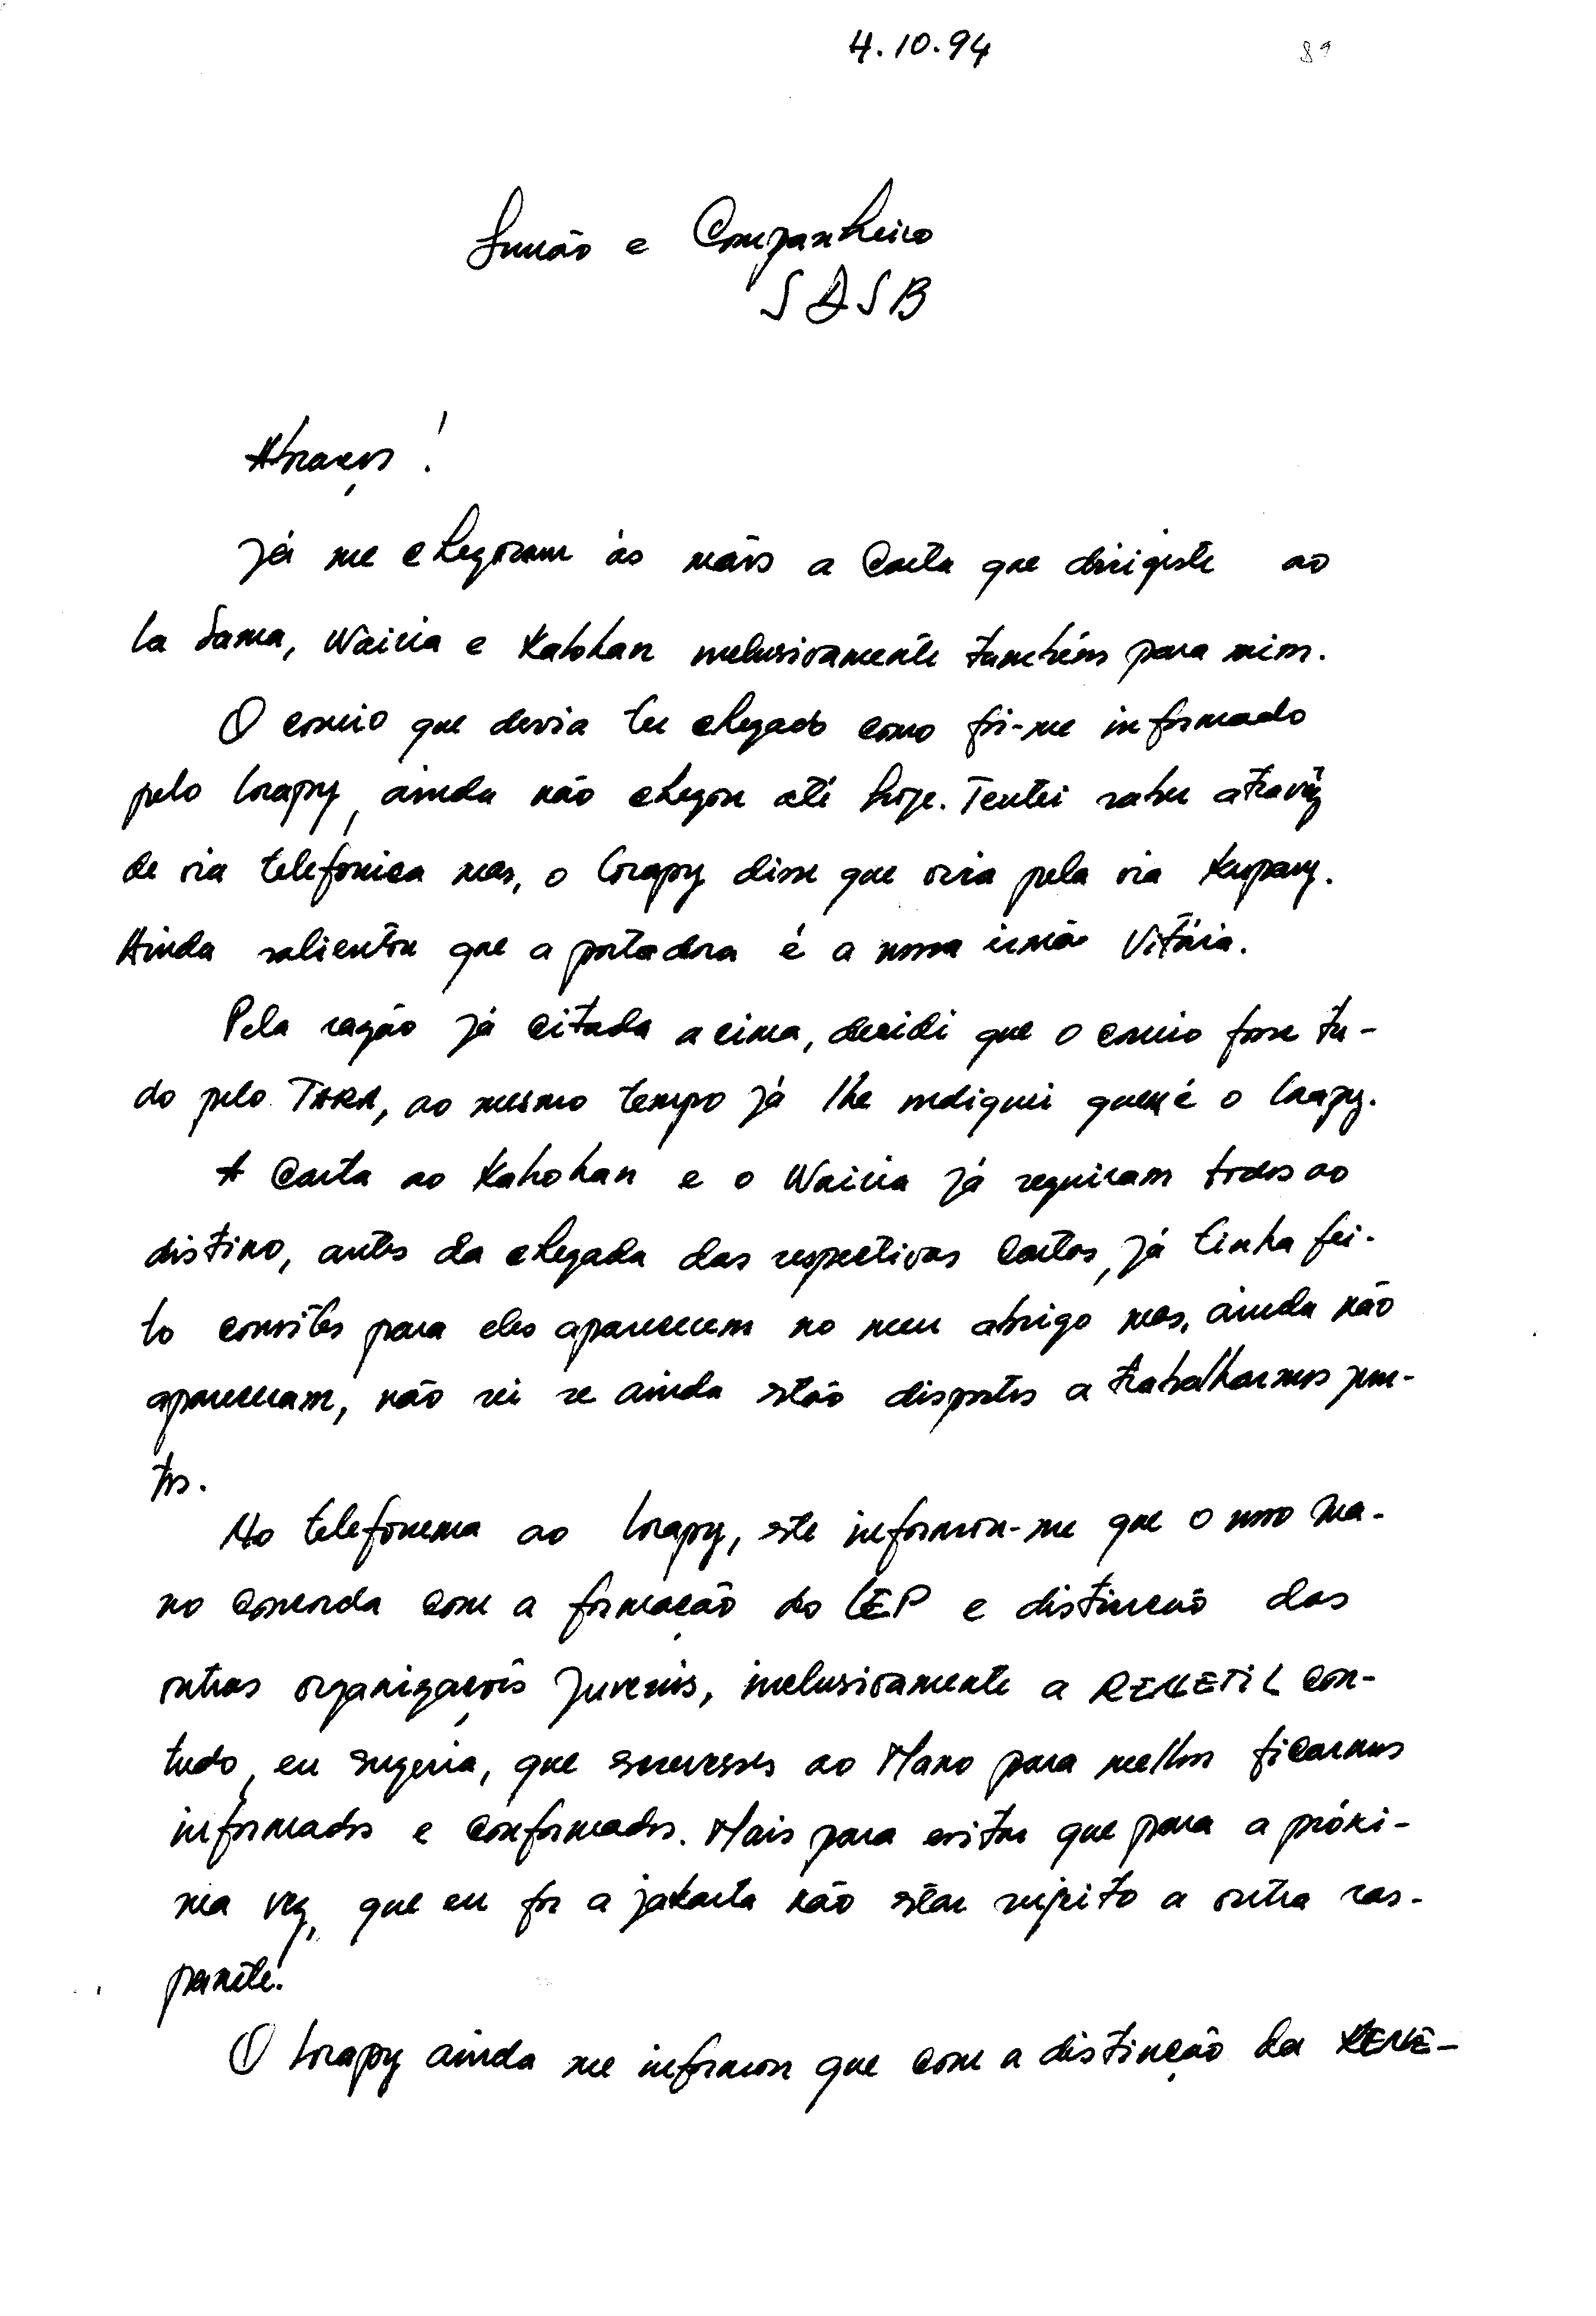 4.10.94 89
Irmão e Companheiro
SASB
Abraços!
Já me chegaram às mãos a Carta que dirigiste ao
La Sama, Wairia e Kahohan inclusivamente também para mim.
O correio que devia ter chegado como foi-me informado
pelo Lorapy, ainda não chegou até hoje. Tentei saber através
de via telefonica mas, o Lorapy disse que viria pela via Kupang.
Ainda salientou que a portadora é a nossa irmã Vitória.
Pela razão já citada acima, decidi que o correio fosse tu-
do pelo TARA, ao mesmo tempo já lhe indiquei quem é o Lorapy.
A Carta ao Kahohan e o Wairia já seguiram todos ao
distino, antes da chegada das respectivas Cartas, já tinha fei-
to convites para eles aparecerem no meu abrigo mas, ainda não
apareceram, não sei se ainda estão dispostos a trabalharmos jun-
tos.
No telefonema ao Lorapy, este informou-me que o nosso Ma-
no concorda com a formação do LEP e distincão das
outras organizações Juvenis, inclusivamente a RENETIL con-
tudo, eu sugeria, que escrevesses ao Mano para melhor ficarmos
informados e conformados. Mais para evitar que para a próxi-
ma vez, que eu for a jakarta não estar sujeito a outra ras-
panete.
O Lorapy ainda me informou que com a distinção da RENE-